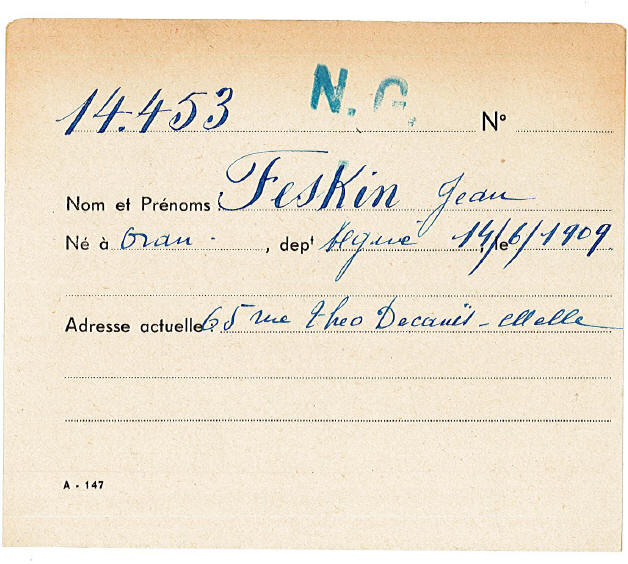 N. G.
14.453 N°
Nom et Prénoms : Feskin Jean
Né à Oran , dept Algérie , le 14/6/1909
Adresse actuelle : 65 rue Theo Decanis - Melle
A - 147